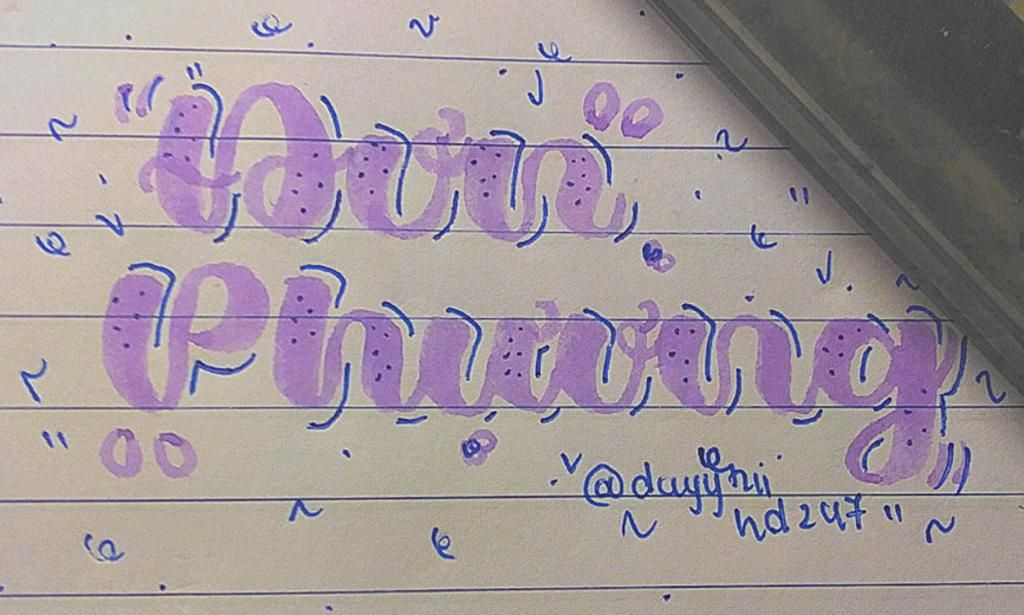 Đơn
Phương
@duyynii
nd247